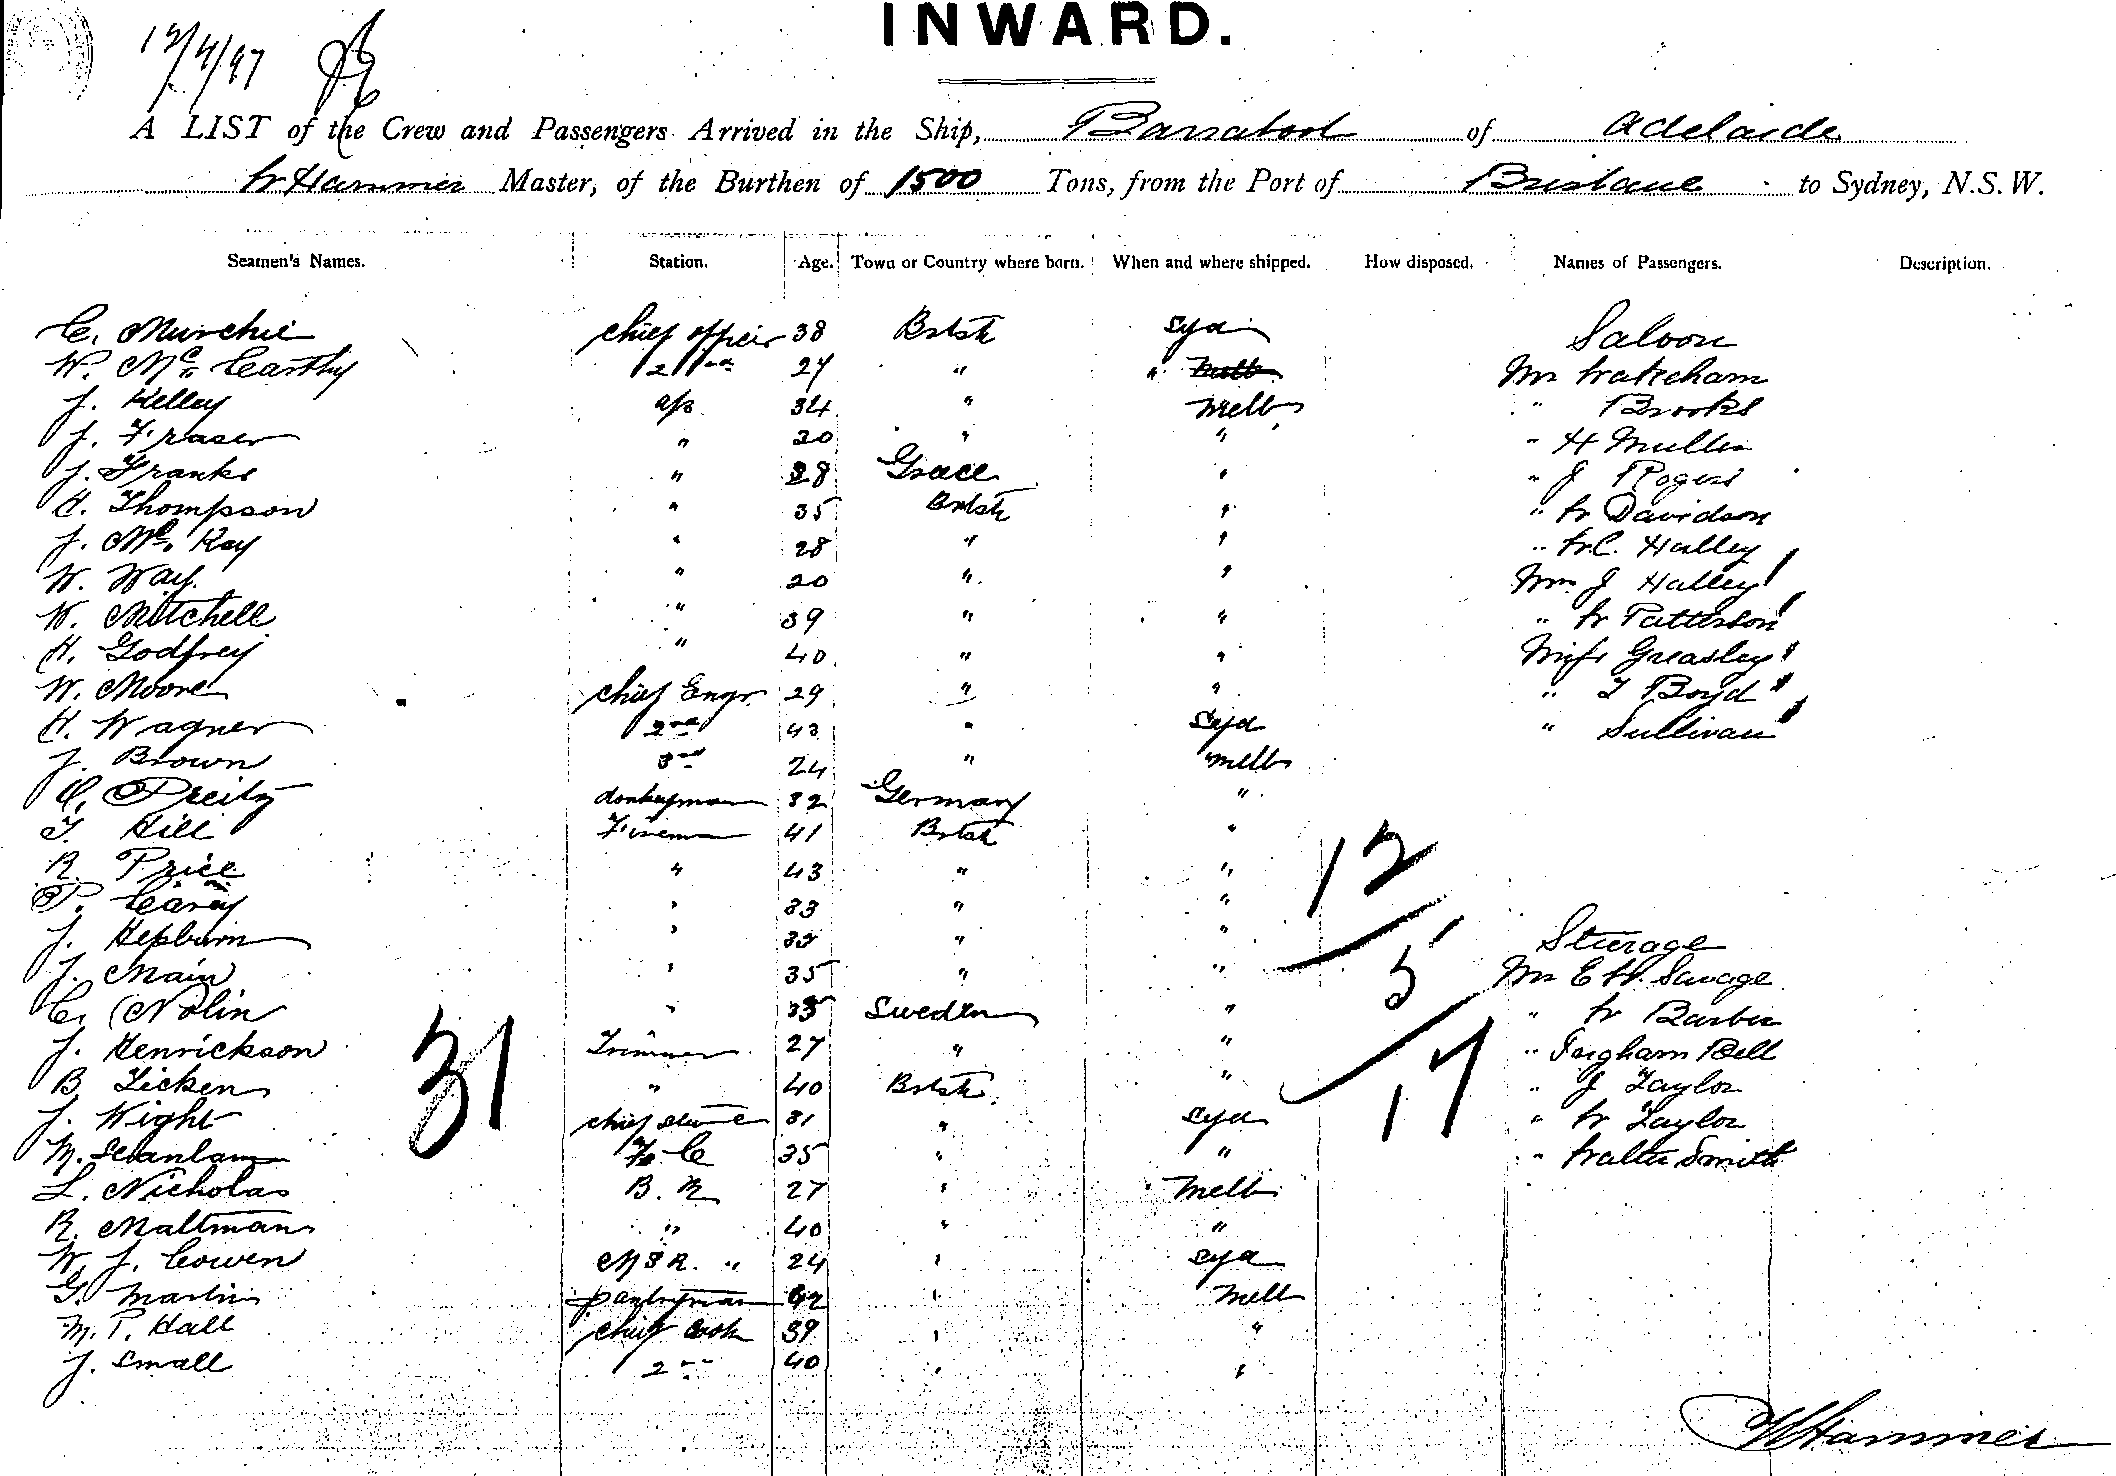 INWARD.
12/4/97
A LIST of the Crew and Passengers Arrived in the Ship, Barrabool of Adelaide
W Hammer Master, of the Burthen of 1500 Tons, from the Port of Brisbane to Sydney, N.S.W.
Seamen's Names. Station. Age. Town or Country where born. When and where shipped. How disposed. Names of Passengers. Description.
C. Murchie chief officer 38 Brtsh Syd Saloon
W. McCarthy 2nd 27 " " Melb Mr Wakeham
J. Kelley a/b 34 " Melb " Brooks
J. Fraser " 20 " " " H Muller
J. Franks " 28 Grace " " J Rogers
H. Thompson " 35 Brtsh " " W Davidson
J. Mc Kay " 28 " " " W C. Halley
W. Way " 20 " " Mrs J Halley
W. Mitchell " 39 " " " W Patterson
H. Godfrey " 40 " " Miss Greasley
W. Moore chief Engr 29 " " " T Boyd
H. Wagner 2nd 43 " Syd " Sullivan
J. Brown 3rd 24 " Melb
donkeyman 32 Germany "
T. Hill Fireman 41 Brtsh "
R. Price " 43 " "
P. Carey " 33 " "
12
J. Hepburn " " " Steerage
J. Main " 35 " " Mr E W. Savage
5
C. Nolin " 35 Sweden " " W Barber
J. Henrickson Trimmer 27 " " " Bell
31
17
B Licken " 40 Brtsh " " J Taylor
J. Wight chief 31 " Syd " W Taylor
M. Scanlan 35 " " " Walter Smith
L. Nicholas B. R 27 " Melb
R. Maltman " 40 " "
W. J. Cowen M S R. " 24 " Syd
G. Martin pantryman 42 " Melb
M. P. Hall chief cook 39 " "
J. Small 2nd 40 " "
W Hammer